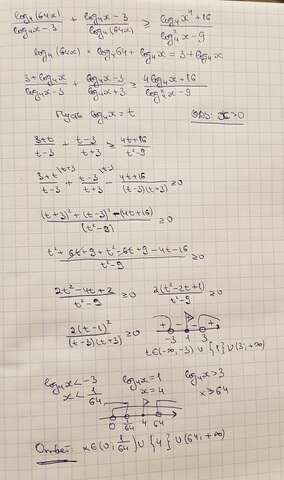 log₄(64x)/(log₄x-3) + (log₄x-3)/log₄(64x) ≥ (log₄x⁴+16)/(log₄²x-9)
log₄(64x) = log₄64 + log₄x = 3+log₄x
(3+log₄x)/(log₄x-3) + (log₄x-3)/(log₄x+3) ≥ (4log₄x+16)/(log₄²x-9)
Пусть log₄x = t ОДЗ: x>0
(3+t)/(t-3) + (t-3)/(t+3) ≥ (4t+16)/(t²-9)
(3+t)/(t-3) + (t-3)/(t+3) - (4t+16)/((t-3)(t+3)) ≥0
((t+3)²+(t-3)²-(4t+16))/(t²-9) ≥0
(t²+6t+9+t²-6t+9-4t-16)/(t²-9) ≥0
(2t²-4t+2)/(t²-9) ≥0 2(t²-2t+1)/(t²-9) ≥0
2(t-1)²/((t-3)(t+3)) ≥0 + - - +
-3 1 3
t∈(-∞,-3)∪{1}∪(3,+∞)
log₄x<-3 log₄x=1 log₄x>3
x<1/64 x=4 x>64
0 1/64 4 64
Ответ: x∈(0,1/64)∪{4}∪(64,+∞)